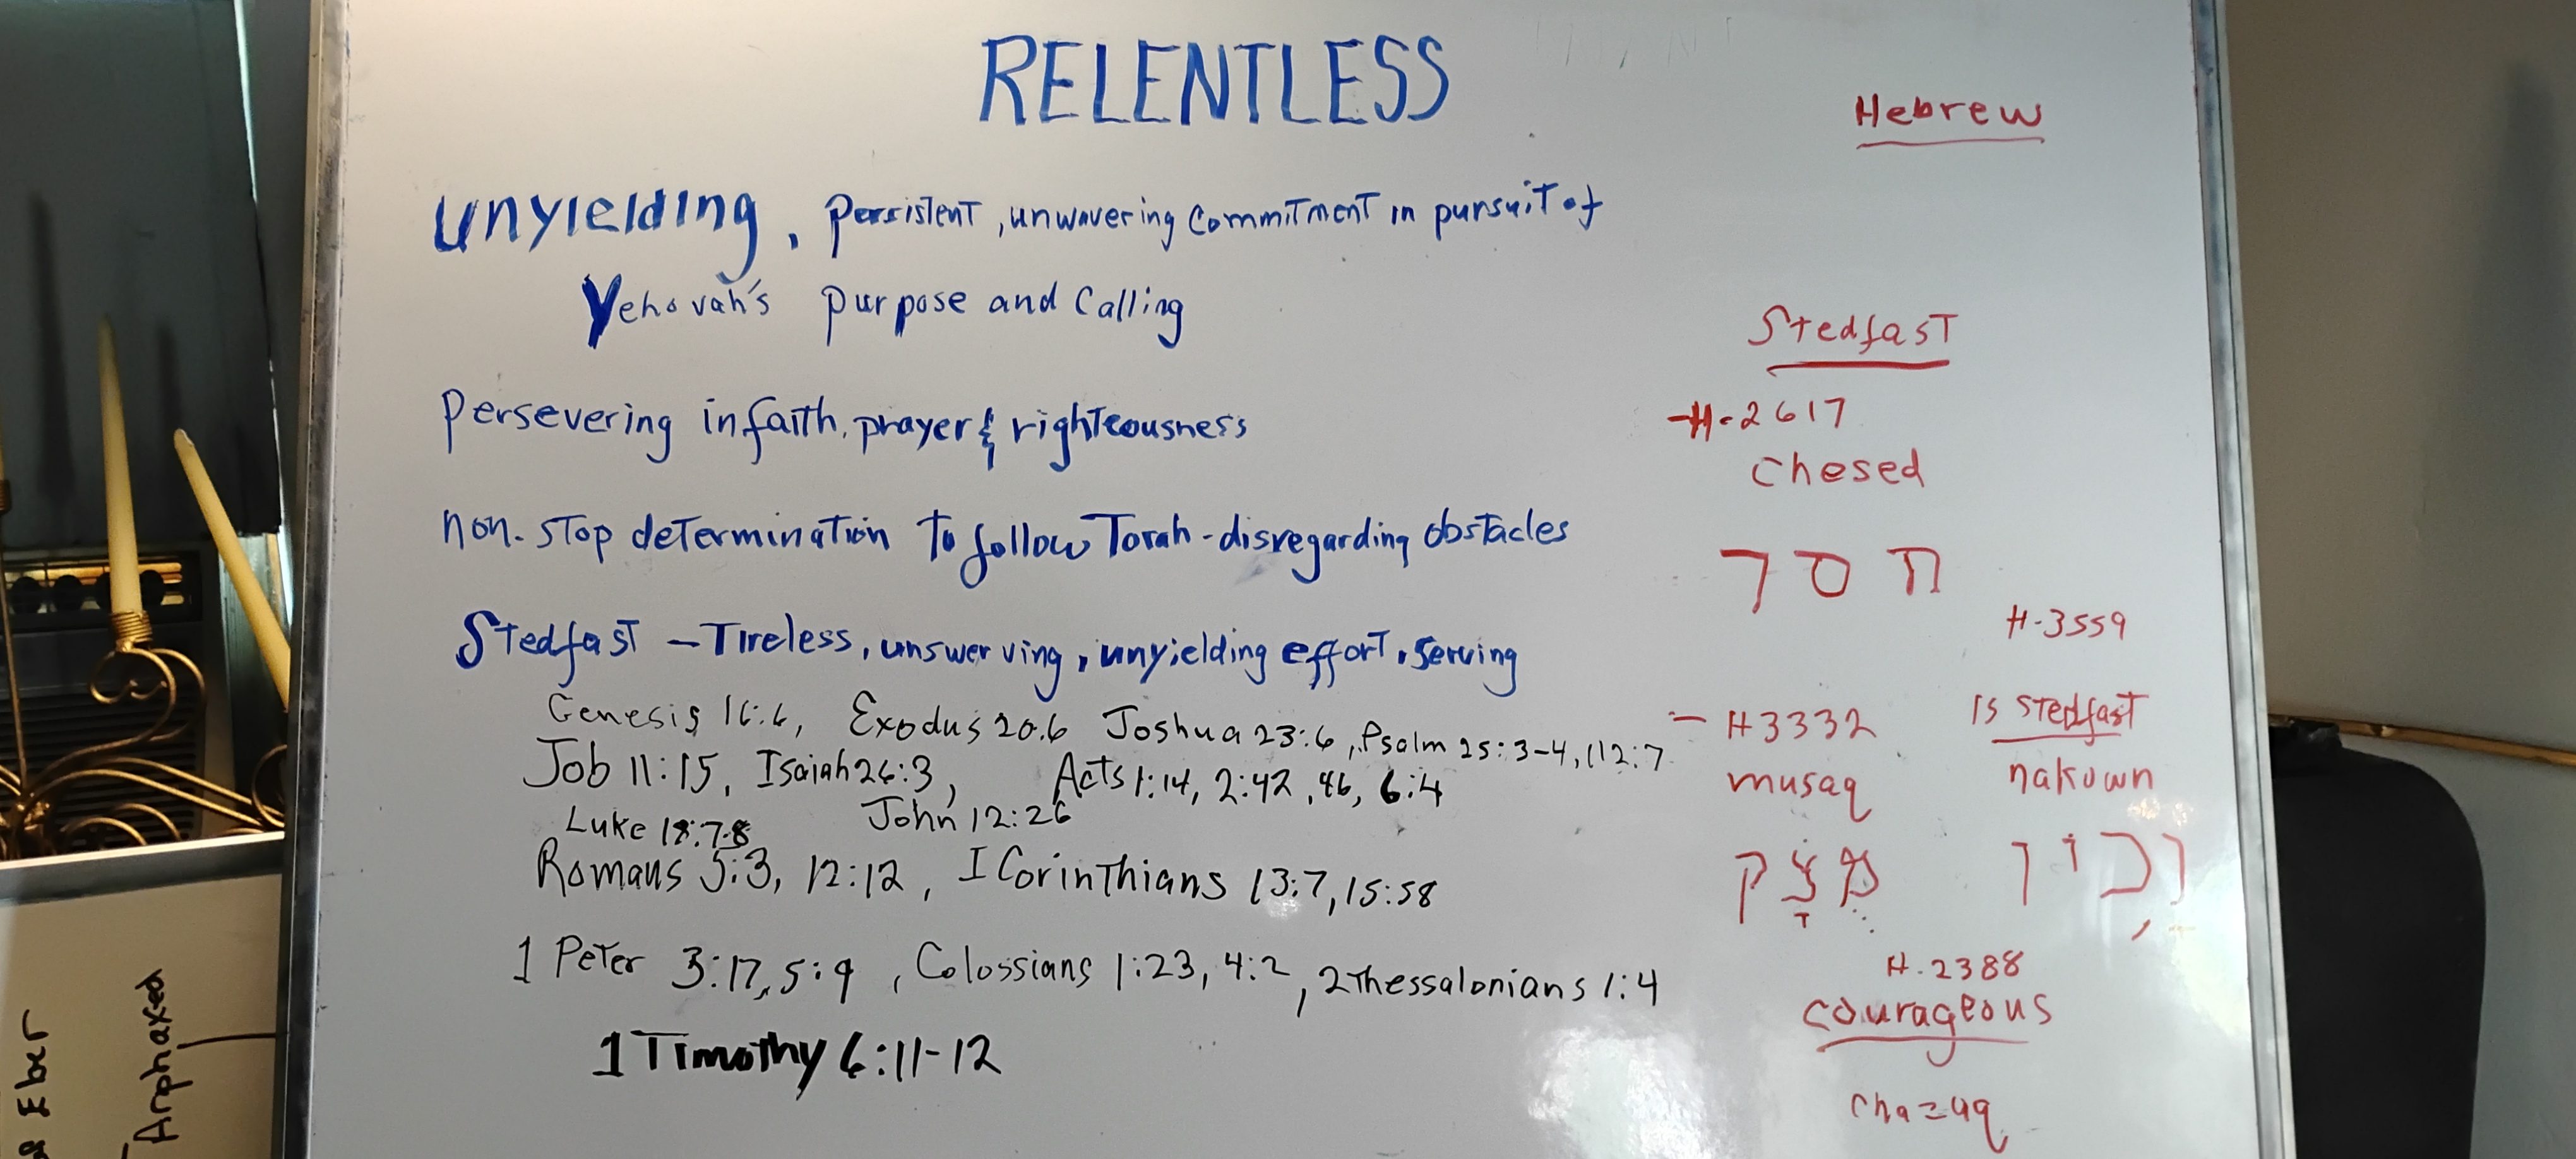 RELENTLESS
unyielding, Persistent, unwavering Commitment in pursuit of
Yehovah's purpose and Calling
Persevering in faith, prayer & righteousness
non-stop determination to follow Torah - disregarding obstacles
Stedfast - Tireless, unswerving, unyielding effort, serving
Genesis 16:6, Exodus 20:6 Joshua 23:6, Psalm 25:3-4, 112:7
Job 11:15, Isaiah 26:3, Acts 1:14, 2:42, 46, 6:4
Luke 18:7-8 John 12:26
Romans 5:3, 12:12, I Corinthians 13:7, 15:58
1 Peter 3:17, 5:9, Colossians 1:23, 4:2, 2 Thessalonians 1:4
1 Timothy 6:11-12
Hebrew
Stedfast
-H-2617
Chesed
חסד
H-3559
- H3332
musaq
מֻצָק
is stedfast
nakown
נכון
H-2388
Courageous
chazaq
Eber
Arphaxed